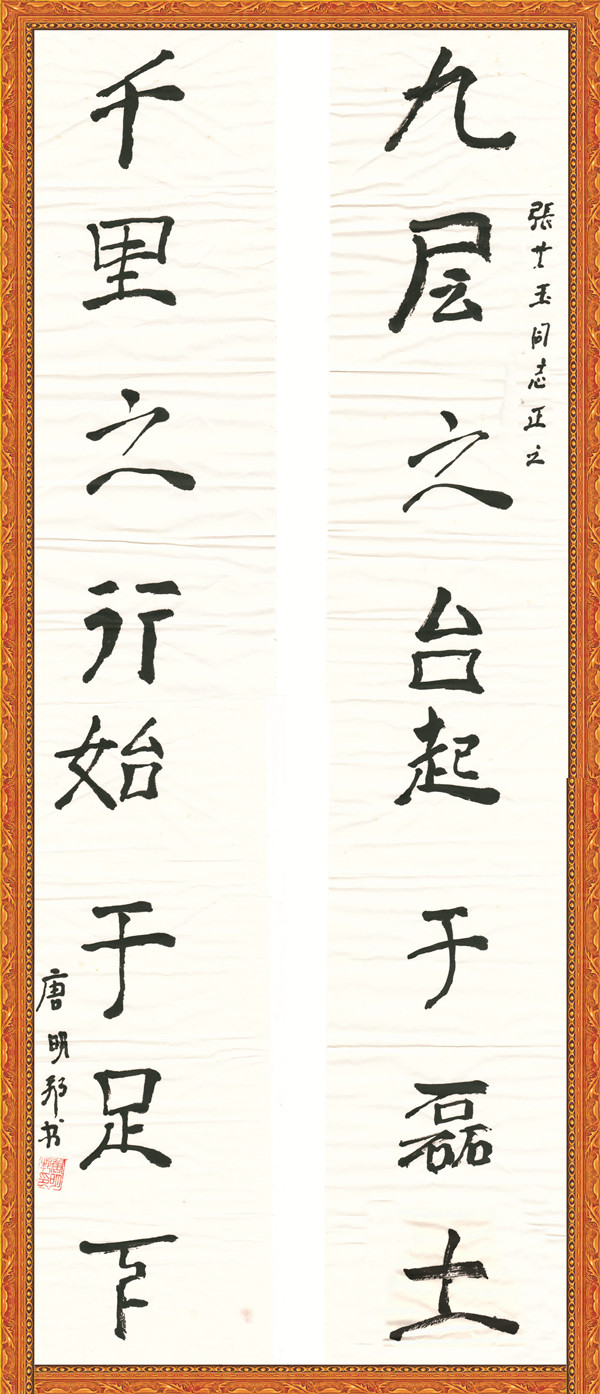 張玉同志正之
九层之台起于磊土
千里之行始于足下
唐明邦书